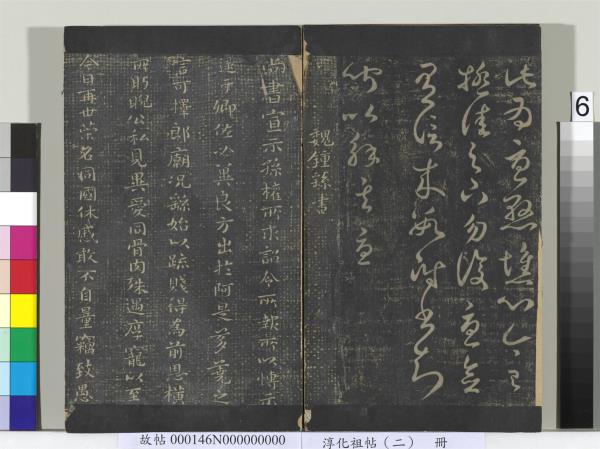 此為憂懸憔心今已
極佳足下勿復憂念
有信來數附書知
聞以解其憂
魏鍾繇書
尚書宣示孫權所求詔令所報所以博示
逮于卿佐必冀良方出於阿是芻蕘之
言可擇郎廟況繇始以疏賤得為前恩橫
所盻睨公私見異愛同骨肉殊遇厚寵以至
今日再世榮名同國休慼敢不自量竊致愚
6
故帖 000146N000000000 淳化祖帖（二） 冊